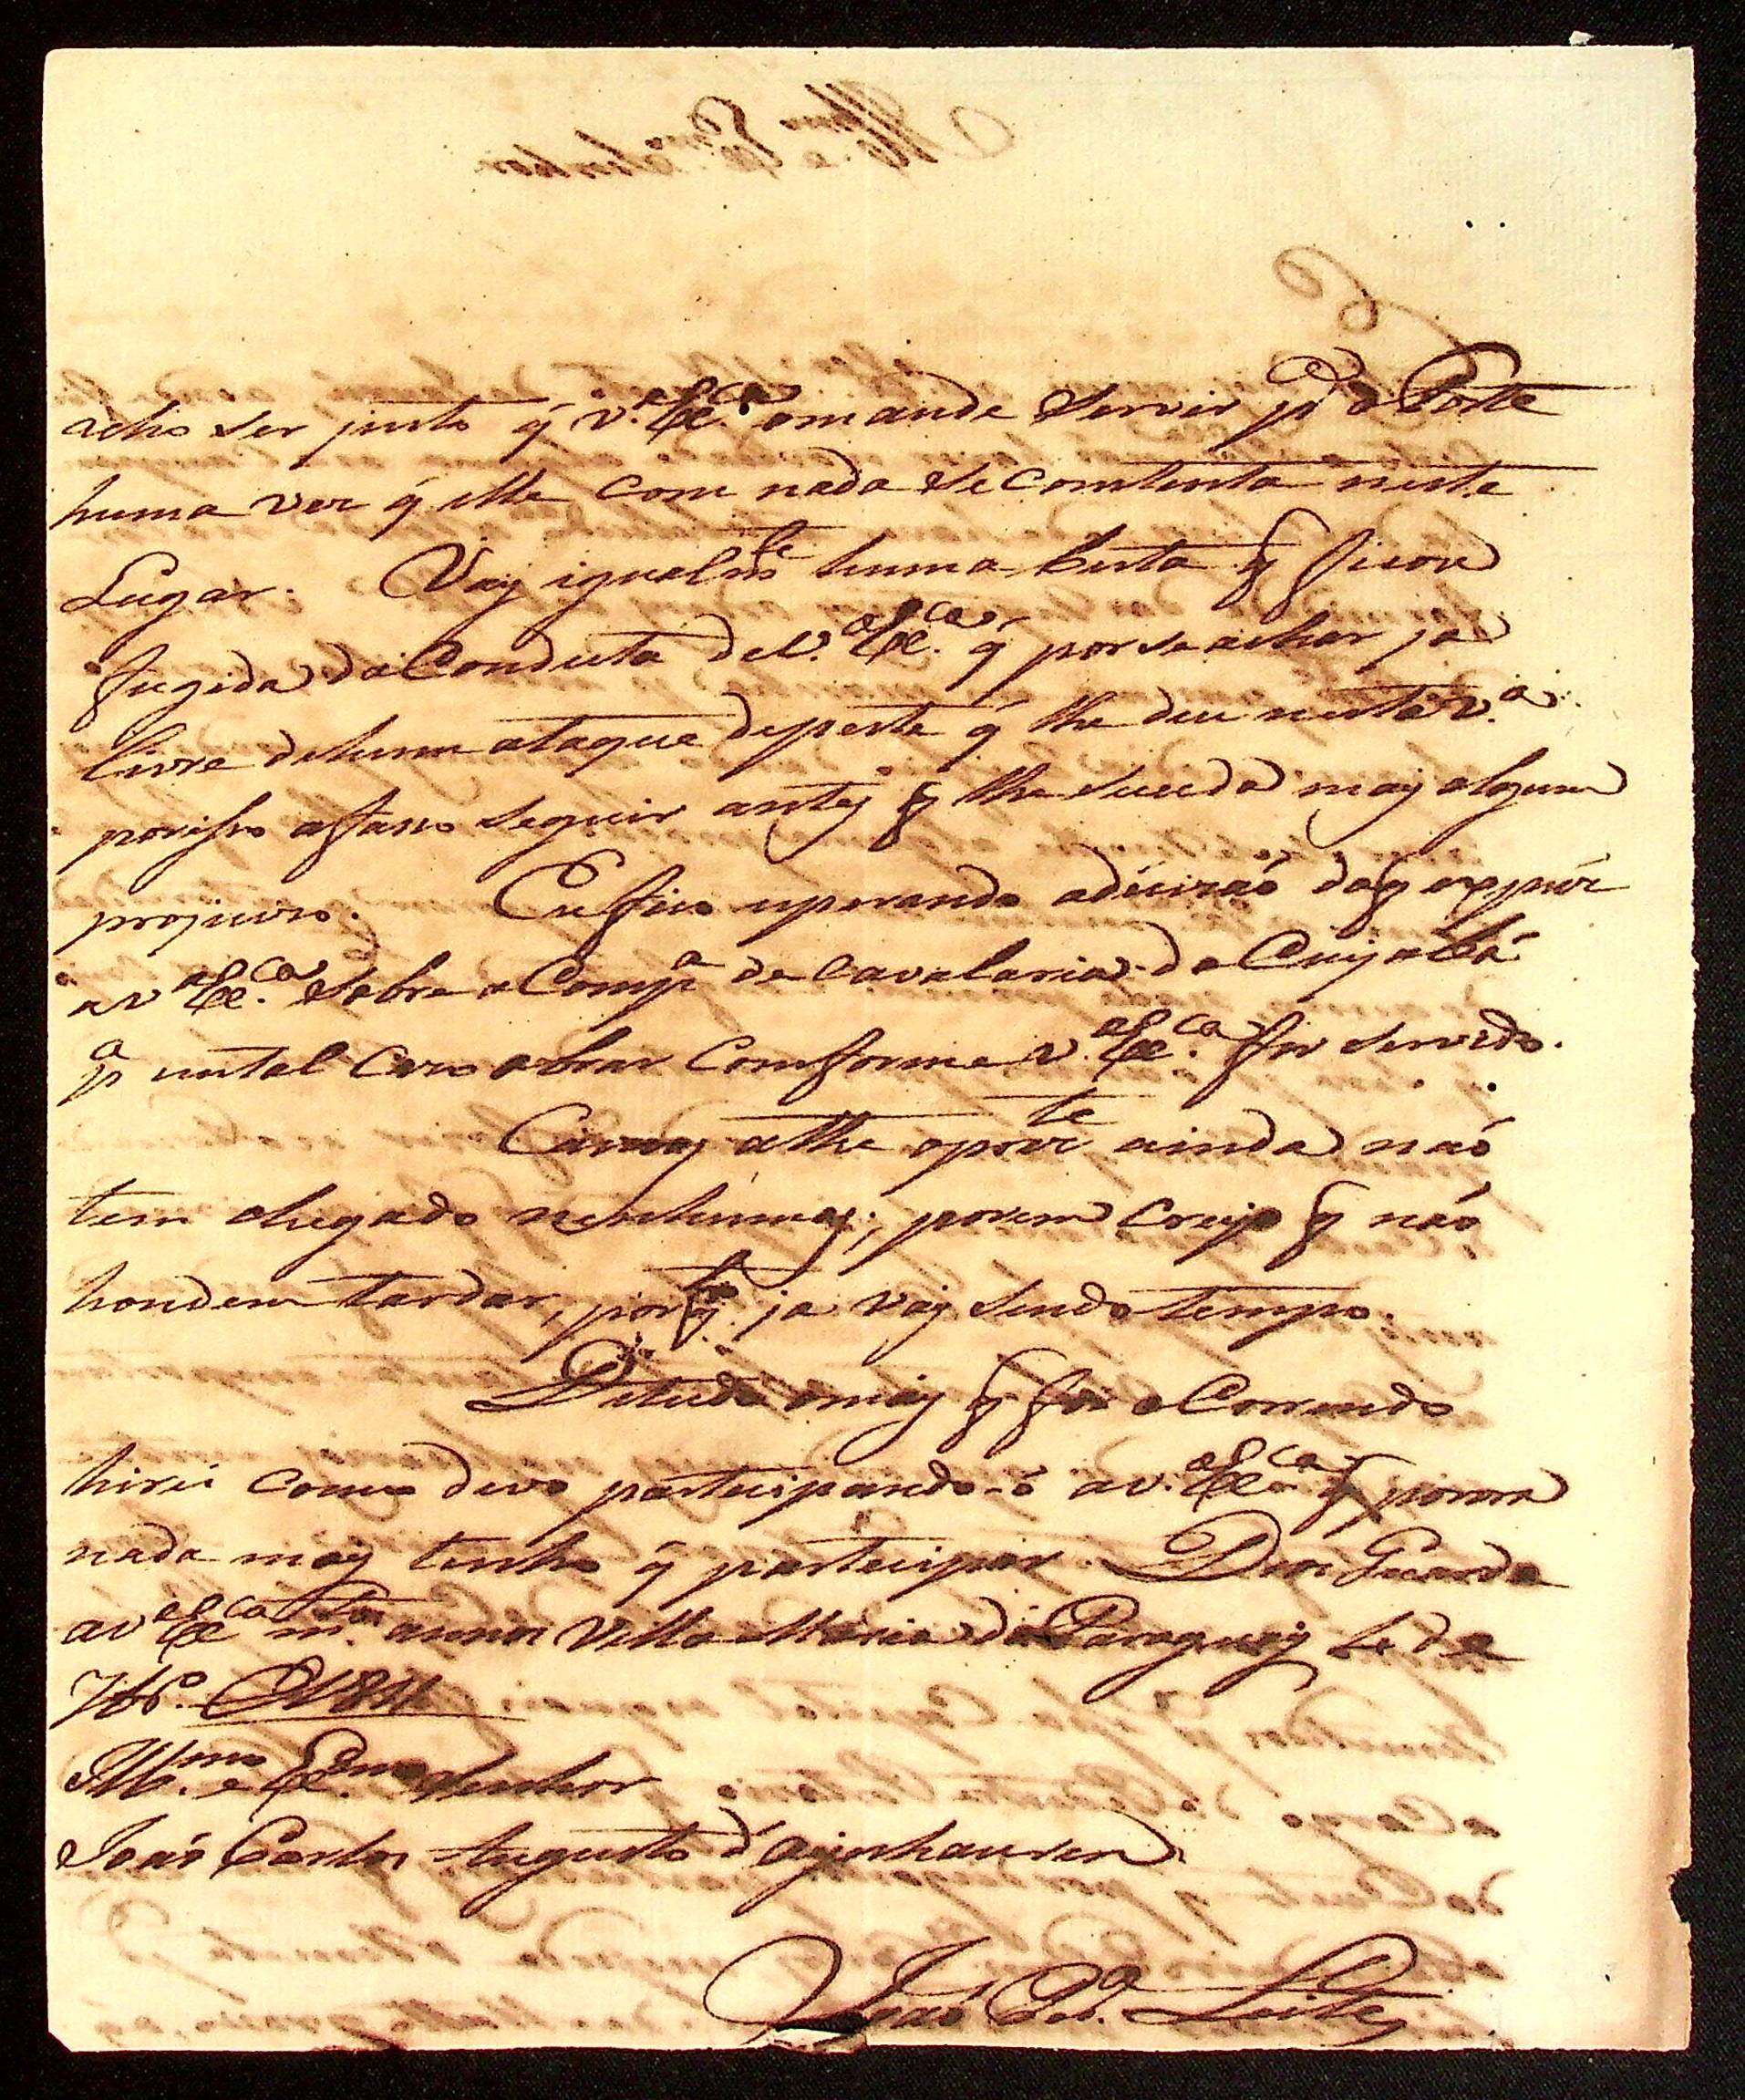 acho ser justo q̃ V.ª Ex.ca o mande Servir pª o Forte
huma vez q̃ elle com nada Se Comtenta neste
Lugar. Vay igualmte huma besta q̃ ficou
fugida da Conducta de V.ª Ex.ca q̃ por se achar ja
livre de hum ataque de peste q̃ lhe deu nesta V.ª
por isso a faso Seguir antes q̃ lhe Suceda may algum
projuizo. Eu fico esperando a decizaõ do q̃ expuz
a V.ª Ex.ca Sobre a Compª de Cavalaria do Cuyabá
pª em tal Cazo obrar Comforme V.ª Ex.ca for Servido.
Canoas athe o prezte ainda naõ
tem chegado nenhumas; porem Creyo q̃ naõ
hondem tardar, porq̃ ja vay Sendo tempo.
De tudo o may q̃ for o Correndo
hirei como devo partecipando-o a V.ª Ex.ca q̃ por ora
nada may tenho q̃ partecipar. Deos Guarde
a V.ª Ex.ca m.tos annos Villa Maria do Paraguay de
7br.º 1811
Ill.mo e Ex.mo Senhor
Joaõ Carlos Augusto d'Oeynhausen
Joaõ Per.ª Leite